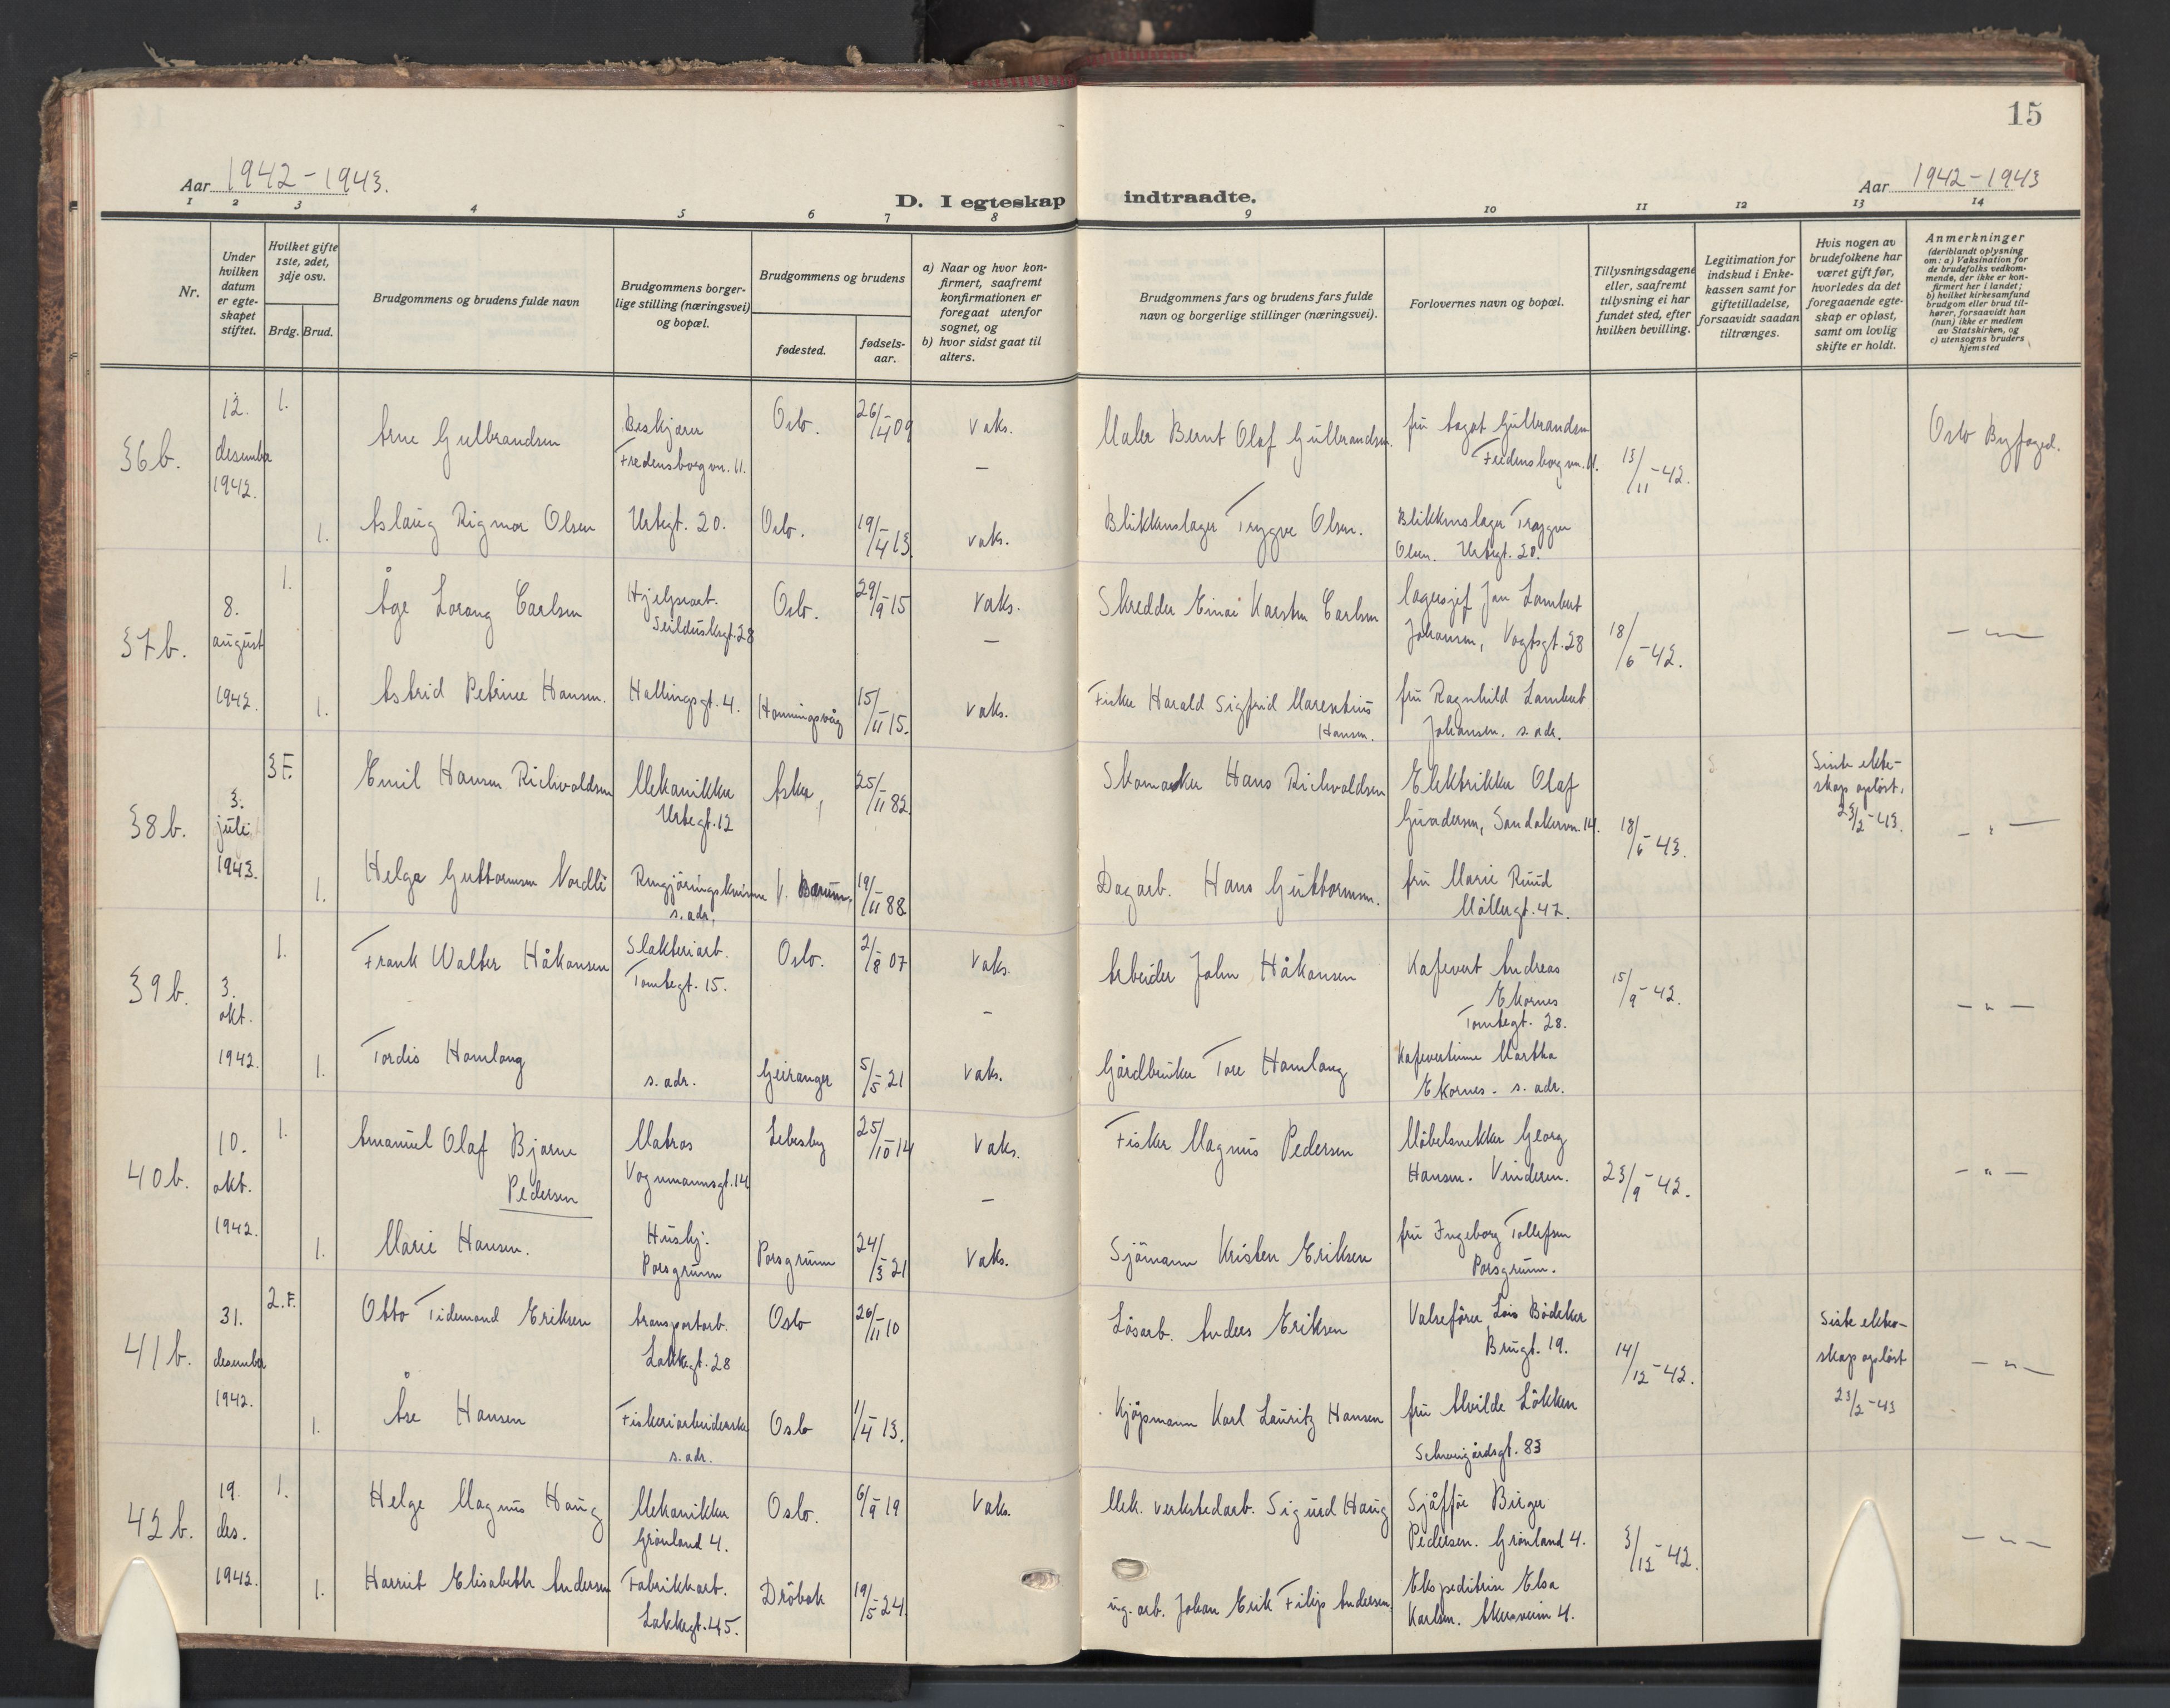 15
Aar 1942-1943.
D. I egteskap indtraadte.
Aar 1942-1943
1 2 3 4 5 6 7 8 9 10 11 12 13 14
Nr.
Under
hvilken
datum
er egte-
skapet
stiftet.
Hvilket gifte
1ste, 2det,
3dje osv.
Brdg. Brud.
Brudgommens og brudens fulde navn
Brudgommens borger-
lige stilling (næringsvei)
og bopæl.
Brudgommens og brudens
fødested.
fødsels-
aar.
a) Naar og hvor kon-
firmert, saafremt
konfirmationen er
foregaat utenfor
sognet, og
b) hvor sidst gaat til
alters.
Brudgommens fars og brudens fars fulde
navn og borgerlige stillinger (næringsvei).
Forlovernes navn og bopæl.
Tillysningsdagene
eller, saafremt
tillysning ei har
fundet sted, efter
hvilken bevilling.
Legitimation for
indskud i Enke-
kassen samt for
giftetilladelse,
forsaavidt saadan
tiltrænges.
Hvis nogen av
brudefolkene har
været gift før,
hvorledes da det
foregaaende egte-
skap er opløst,
samt om lovlig
skifte er holdt.
Anmerkninger
(deriblandt oplysning
om: a) Vaksination for
de brudefolks vedkom-
mende, der ikke er kon-
firmert her i landet;
b) hvilket kirkesamfund
brudgom eller brud til-
hører, forsaavidt han
(hun) ikke er medlem
av Statskirken, og
c) utensogns bruders
hjemsted
36b.
12.
desember
1942.
1.
Arne Gulbrandsen
Beskjærer
Fredensborgvn. 11.
Oslo.
26/4-09
Vaks.
—
Maler Bernt Olaf Gulbrandsen.
fru Aagot Gulbrandsen
Fredensborgvn. 11.
13/11-42.
Oslo Byfoged.
1.
Aslaug Rigmor Olsen
Urtegt. 20.
Oslo.
19/4-13.
vaks.
Blikkenslager Trygve Olsen.
Blikkenslager Trygve
Olsen. Urtegt. 20.
37b.
8.
august
1942.
1.
Åge Lorang Carlsen
Hjelpearb.
Seilduksgt. 28
Oslo.
29/9-15
Vaks.
—
Skredder Einar Karsten Carlsen
lagersjef Jan Lambert
Johansen, Vogtsgt. 28
18/6-42.
— " —
1.
Astrid Petrine Hansen.
Hallingsgt. 4.
Honningsvåg
15/11-15.
vaks.
Fisker Harald Sigfrid Marentius
Hansen.
fru Ragnhild Lambert
Johansen. s. adr.
38b.
3.
juli
1943.
3 F.
Emil Hansen Richvoldsen
Mekanikker
Urtegt. 12
Asker,
25/11 82.
Skomaker Hans Richvoldsen
Elektrikker Olaf
Gundersen, Sandakervn. 14.
18/6-43.
Siste ekte-
skap opløst.
23/2-43.
— " —
1.
Helga Guttormsen Nordli
Rengjøringskvinne
s. adr.
V. Bærum,
19/11 88
Dagarb. Hans Guttormsen.
fru Marie Ruud
Møllergt. 47.
39b.
3.
okt.
1942.
1.
Frank Walter Håkansen
Slakteriarb.
Tomtegt. 15.
Oslo.
2/8-07
Vaks.
—
Arbeider John Håkansen
Kafevert Andreas
Ekornes
Tomtegt. 28.
15/9-42.
— " —
1.
Tordis Homlong
s. adr.
Geiranger
5/5-21
Vaks.
Gårdbruker Tore Homlong
Kafevertinne Martha
Ekornes - s. adr.
40b.
10.
okt.
1942.
1.
Amanuel Olaf Bjarne
Pedersen
Matros
Vognmannsgt. 14
Lebesby
25/10-14
Vaks.
—
Fisker Magnus Pedersen
Møbelsnekker Georg
Hansen. Vinderen.
23/9-42.
— " —
1.
Marie Hansen.
Hushj.
Porsgrunn
Porsgrunn
24/3-21
Vaks.
Sjømann Kristen Eriksen
fru Ingeborg Tollefsen
Porsgrunn.
41b.
31.
desember
1942.
2. F.
Otto Tidemand Eriksen
transportarb.
Lakkegt. 28
Oslo
26/11-10
Løsarb. Anders Eriksen
Valsefører Lois Bødeker
Brugt. 19.
14/12-42.
Siste ekte-
skap opløst
23/2-43
— " —
1.
Åse Hansen
Fiskeriarbeiderske
s. adr.
Oslo
1/4-13.
Kjøpmann Karl Lauritz Hansen
fru Alvilde Løkken
Schweigårdsgt. 83
42b.
19.
des.
1942.
1.
Helge Magnus Haug
Mekanikker
Grønland 4.
Oslo.
6/9-19
Vaks.
Mek. verkstedarb. Sigurd Haug
Sjåffør Birger
Pedersen. Grønland 4.
3/12-42.
— " —
1.
Harriet Elisabeth Andersen
Fabrikkarb.
Lakkegt. 45.
Drøbak
19/5-24.
arb. Johan Erik Filip Andersen,
Ekspeditrise Elsa
Karlsen. Akersveien 4.